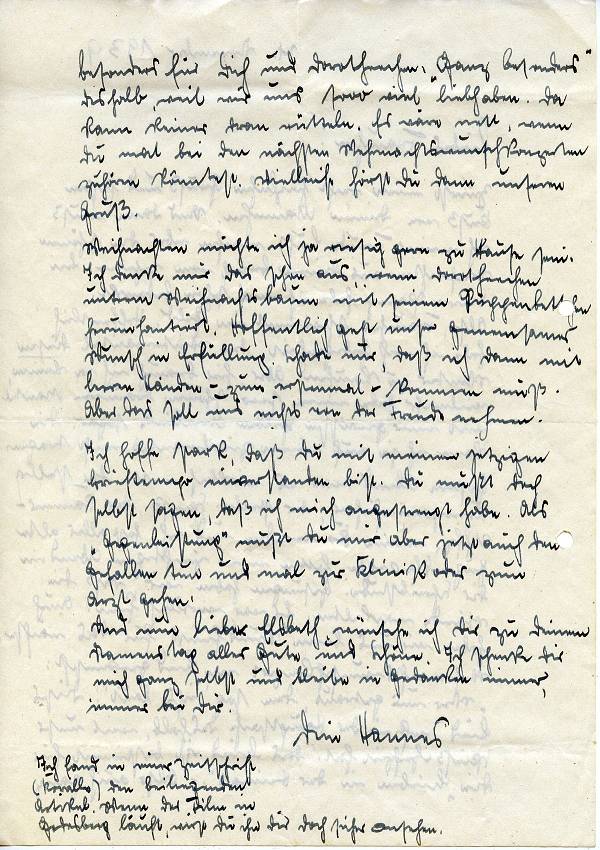 besonders für Dich und Dorotheechen. "Ganz besonders"
deshalb, weil wir uns sooo viel liebhaben. Da
kann keiner dran rütteln. Es wäre nett, wenn
Du mal bei den nächsten Wehrmachtswunschkonzerten
zuhören könntest. Vielleicht hörst Du dann unseren
Gruß.
Weihnachten möchte ich ja riesig gern zu Hause sein.
Ich denke mir das schön aus, wenn Dorotheechen
unterm Weihnachtsbaum mit seinem Puppenbettchen
herumhantiert. Hoffentlich geht unser gemeinsamer
Wunsch in Erfüllung. Schade nur, daß ich dann mit
leeren Händen – zum erstenmal – kommen muß.
Aber das soll uns nichts von der Freude nehmen.
Ich hoffe stark, daß Du mit meinem jetzigen
Brieftempo einverstanden bist. Du mußt doch
selbst sagen, daß ich mich angestrengt habe. Als
"Gegenleistung" mußt Du mir aber jetzt auch den
Gefallen tun und mal zur Klinik oder zum
Arzt gehen.
Und nun, liebe Elsbeth, wünsche ich Dir zu Deinem
Namenstag alles Gute und Schöne. Ich schenke Dir
mich ganz selbst und bleibe in Gedanken immer,
immer bei Dir.
Dein Hannes
Ich fand in einer Zeitschrift
(Koralle) den beiliegenden
Artikel. Wenn der Film in
Godesberg läuft, wirst Du ihn Dir doch sicher ansehen.